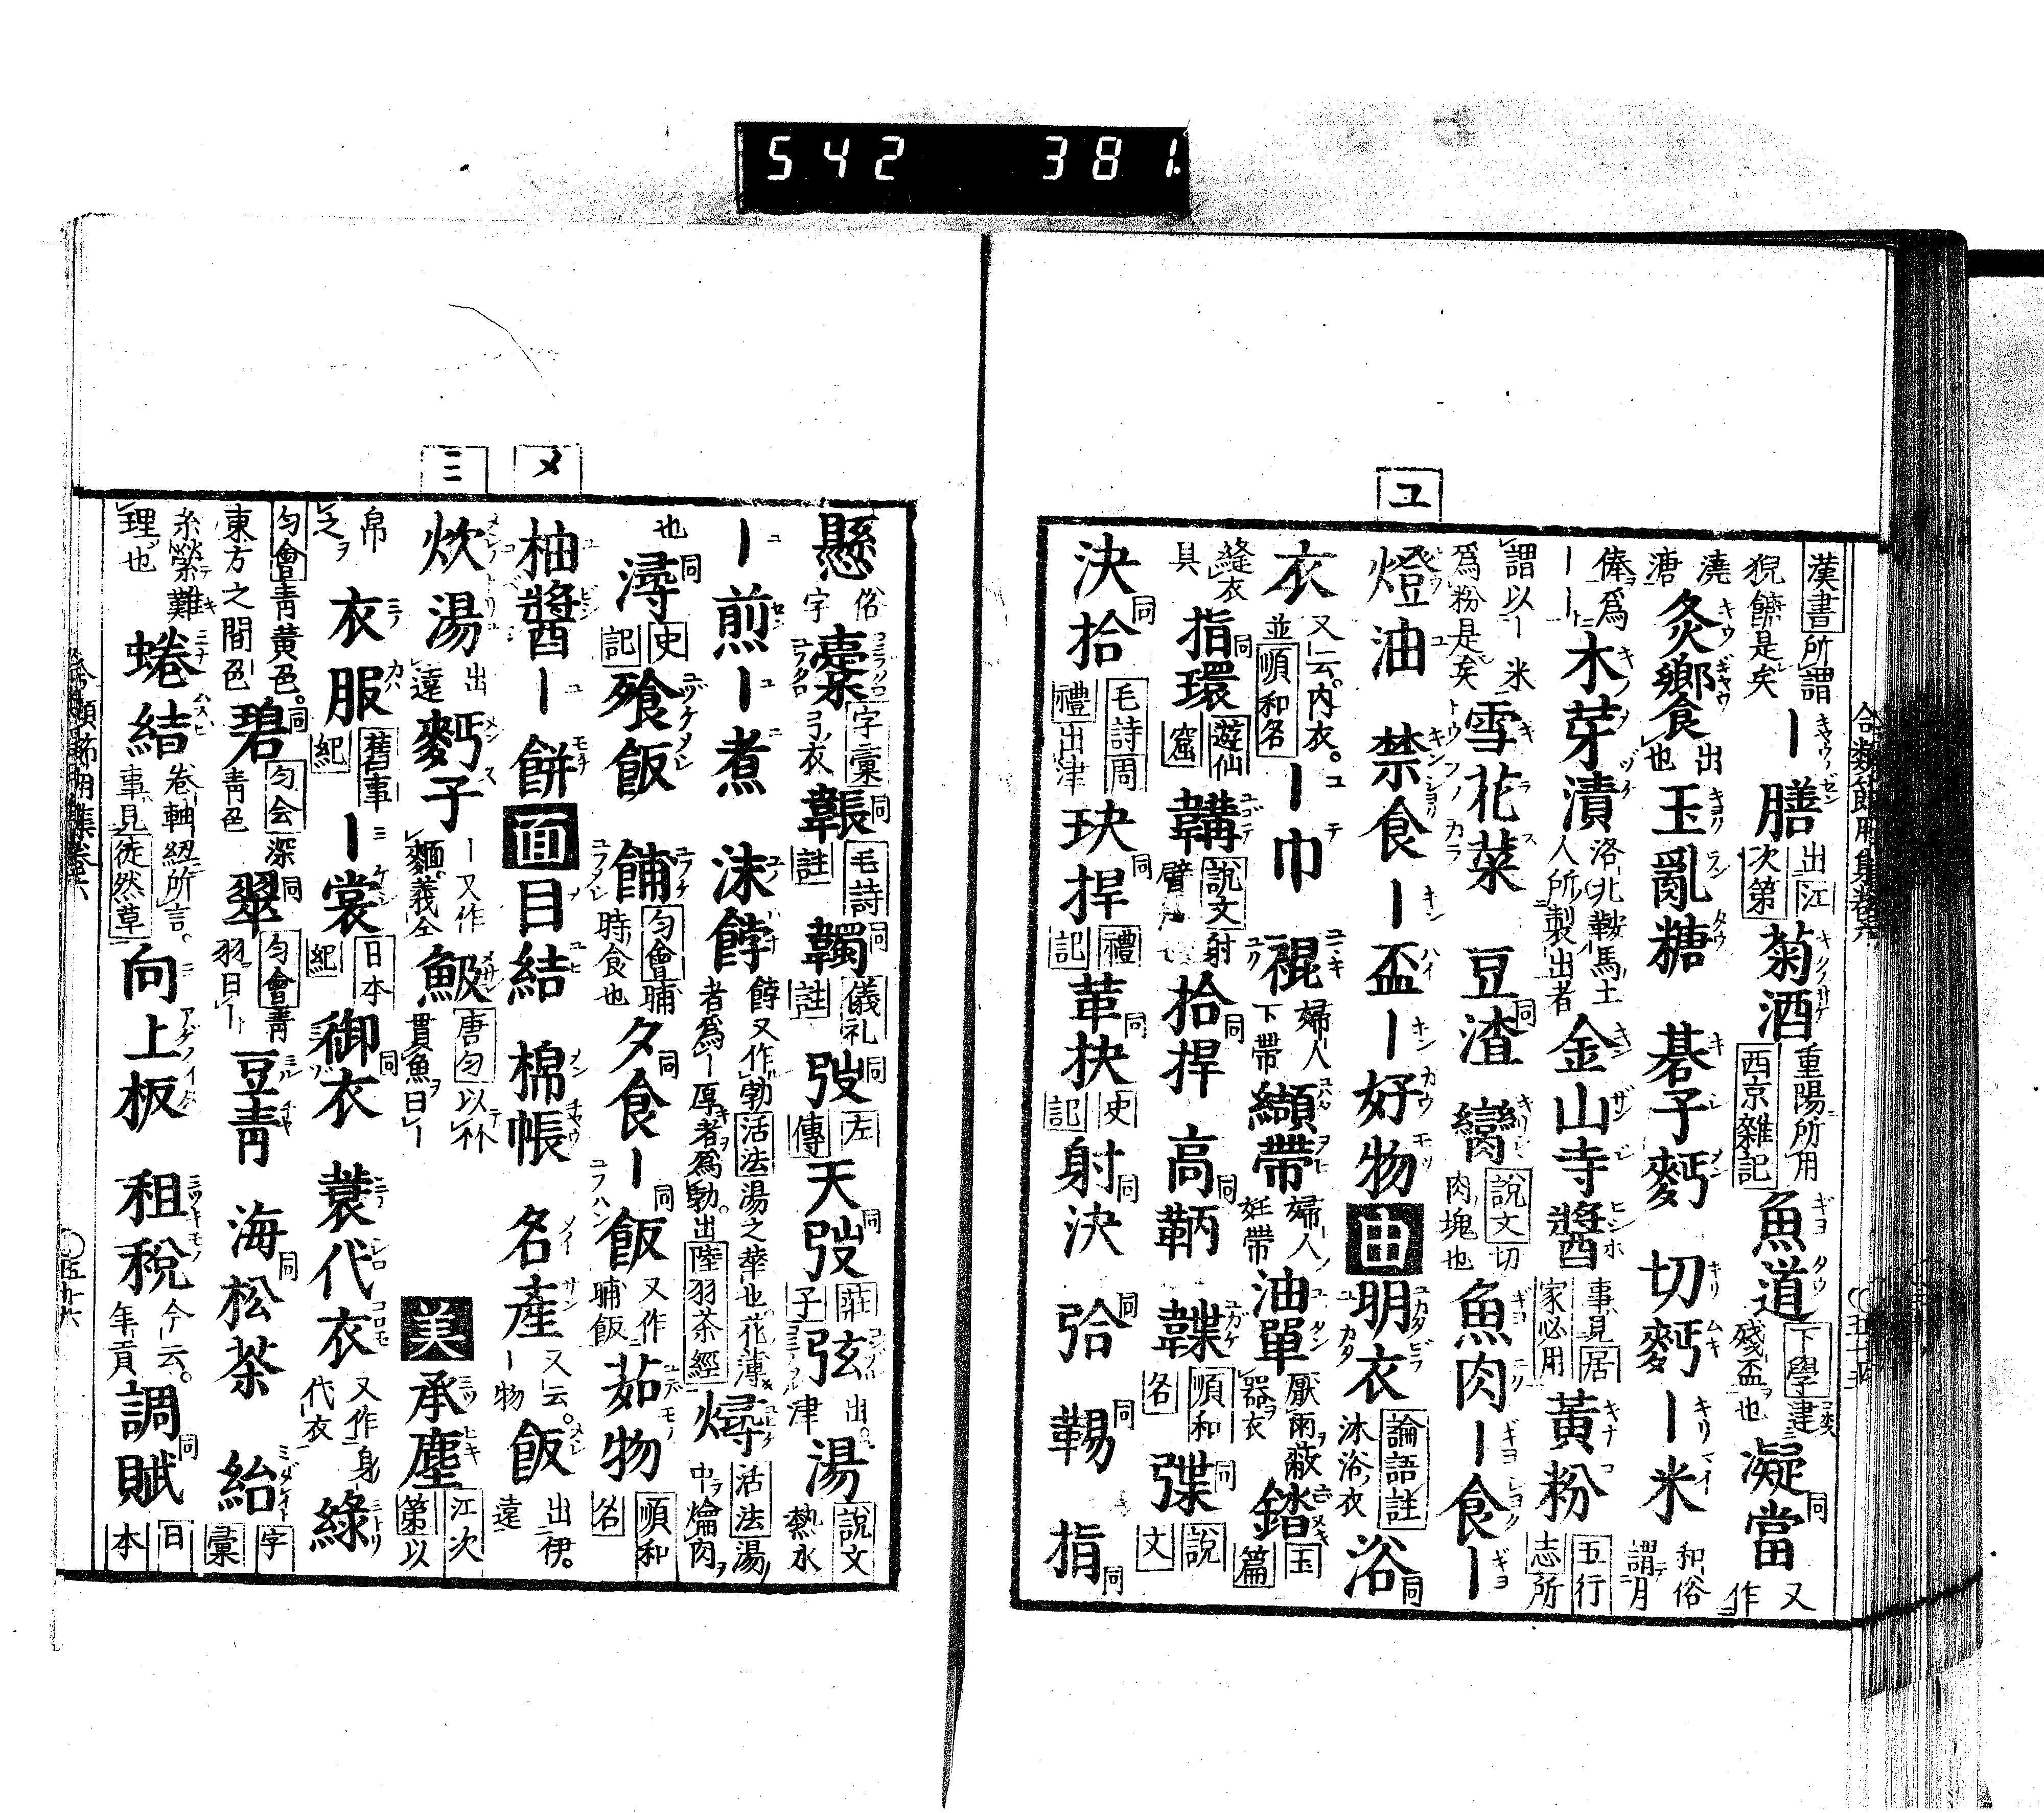 542 381.
ユ
漢書所謂
猊鱭是矣
ー膳 出江次第 菊酒 重陽所用 西京雜記 魚道 下學建 殘盃也 凝當 同 又作
澆溏 灸鄕食 出也 玉亂糖 碁子麪 切麪 ー米 和俗謂月
俸爲ーー 木芽漬 洛北鞍馬土人所製出者 金山寺醬 事見居家必用 黃粉 五行志所
謂以ー米爲粉是矣 雪花菜 豆渣 同 臠 說文切肉塊也 魚肉 ー食ー
燈油 禁食 ー盃 ー好物 由 明衣 論語註 沐浴衣 浴 同
衣 又云內衣。並順和名 ー巾 裩 婦人下帶 纈帶 婦人妊帶 油單 厭雨蔽器衣 錔 玉篇
縫衣具 指環 同 遊仙窟 韝 說文射臂 拾捍 同 高鞆 同 韘 順和名 弽 同 說文
決拾 同 毛詩周禮出津 玦捍 同 禮記 革抉 同 史記 射決 同 弣 同 鞨 同 指 同
合類節用集卷六
メ
ミ
懸 俗字 橐 字彙弓衣 韔 同 毛詩註 韣 同 儀礼註 弢 同 左傳 天弢 同 莊子 弦 出津 湯 說文熱水
ー煎 ー煮 沫餑 餑又作勃活法湯之華也花薄者爲ー厚者爲勃。出陸羽茶經 燖 活法湯中爚肉
也 潯 同 史記 飧飯 餔 匀會晡時食也 夕食 同 ー飯 同 又作晡飯 茹物 順和名
柚醬 ー餅 面 目結 棉帳 名產 又云。ー物 飯 出伊。遠
炊湯 出遠 麪子 ー又作麵。義仝 鮁 唐匀以㭊貫魚曰ー 美 承塵 江次第以
帛之 衣服 舊事紀 ー裳 日本紀 御衣 同 蓑代衣 又作身代衣 綠
匀會靑黃色。東方之間色 碧 同 匀会深靑色 翠 同 匀會靑羽曰ー 豆靑 海松茶 同 紿 字彙
糸縈難理也 蜷結 卷軸紐所言。事見徒然草 向上板 租稅 今云。年貢 調賦 同 日本